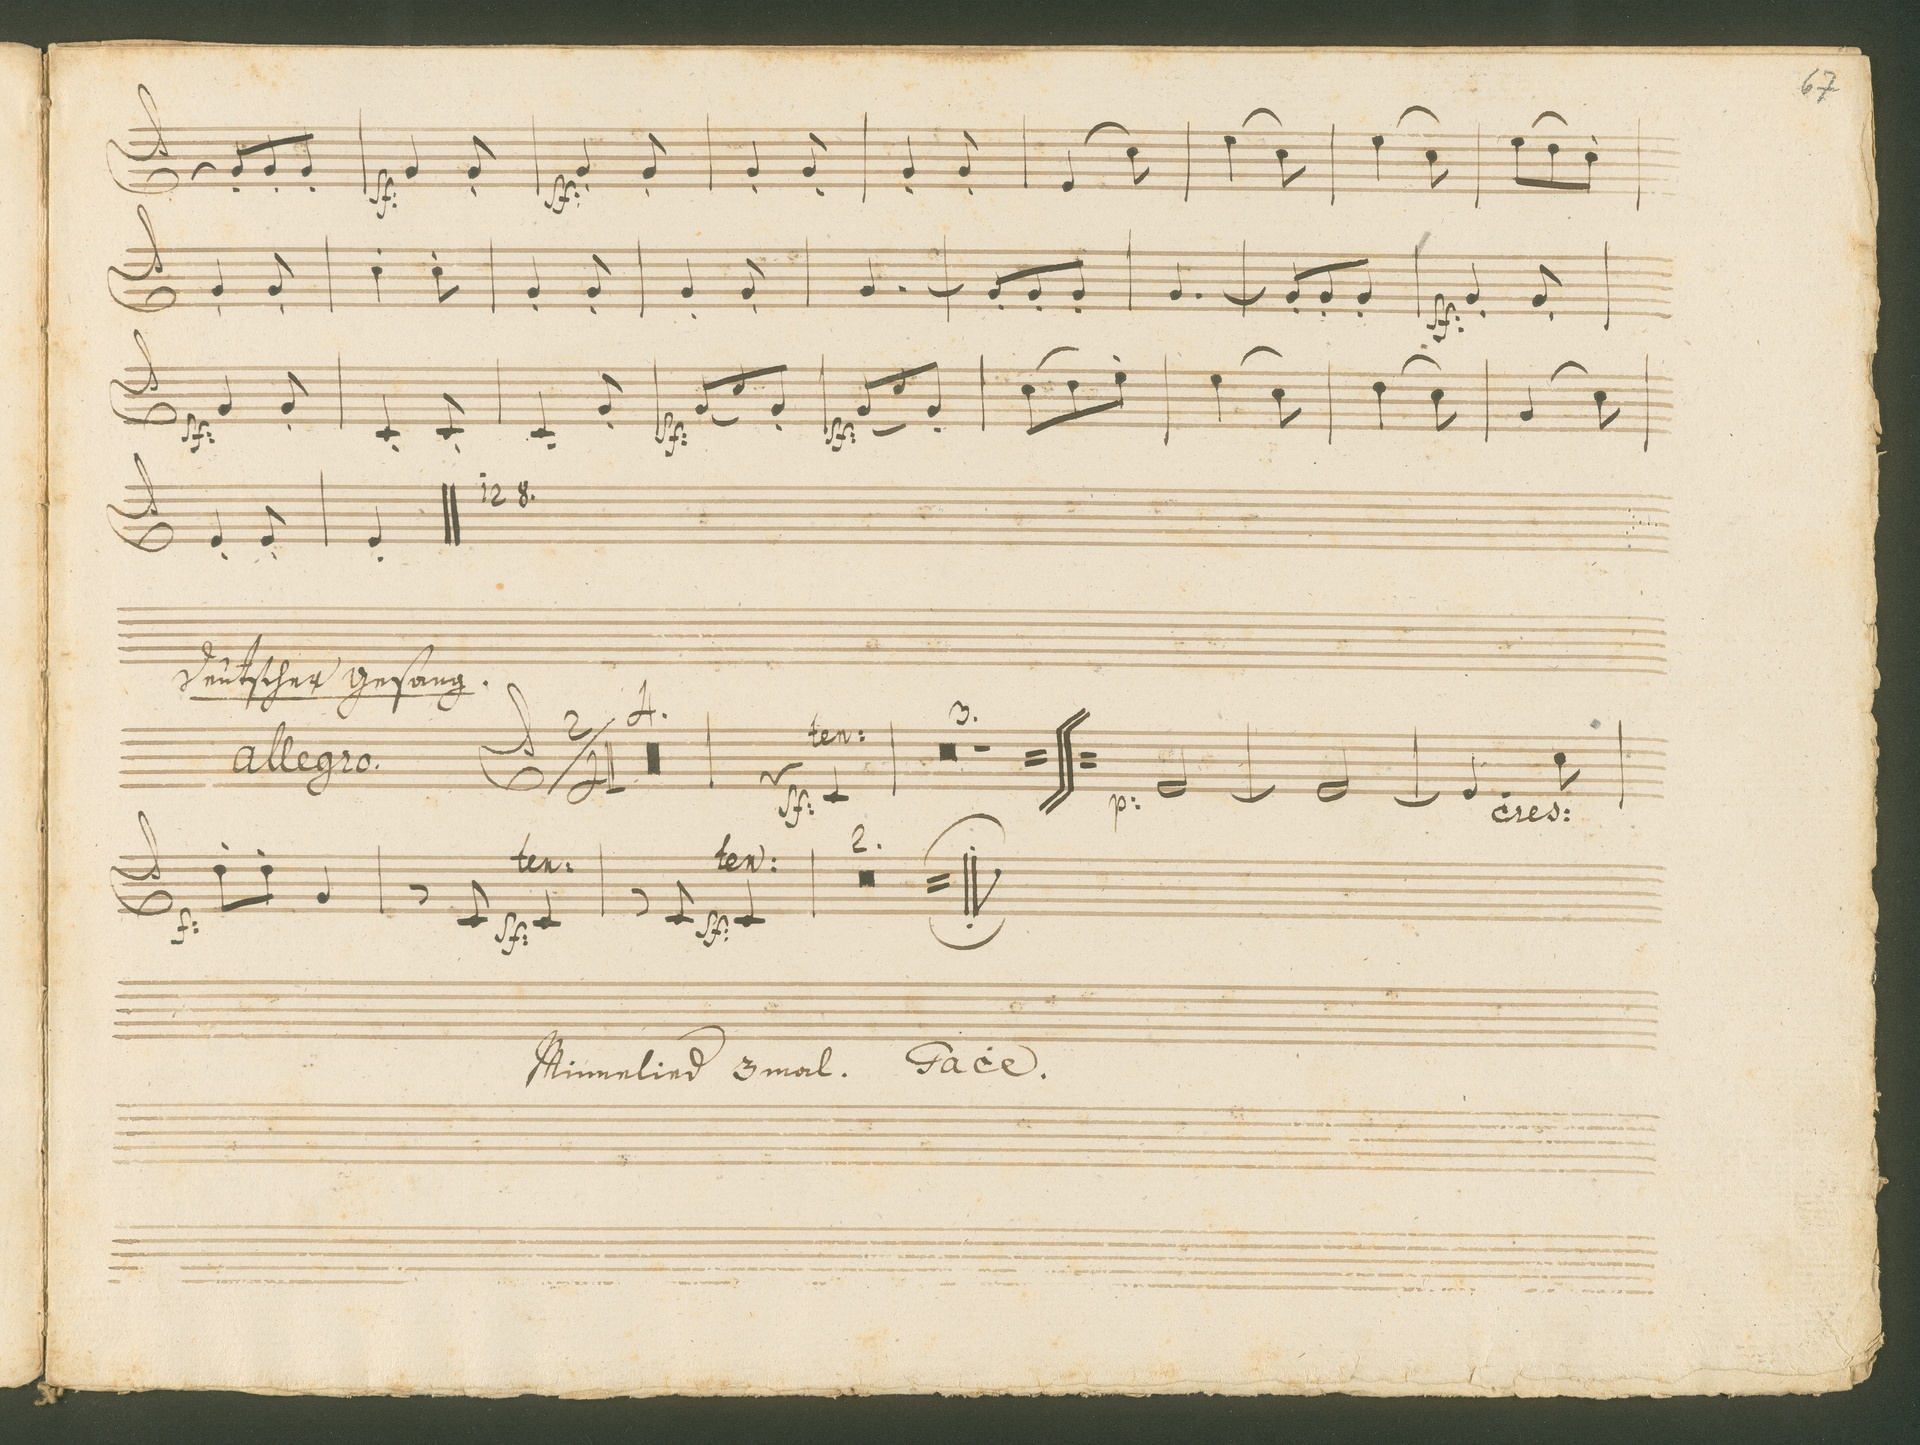 67
sf: sf:
sf:
sf: sf: sf:
12 8.
Deutscher Gesang.
allegro. 2/4 4. sf: ten: 3. p: cres:
f: sf: ten: sf: ten: 2.
Minnelied 3mal. Tace.